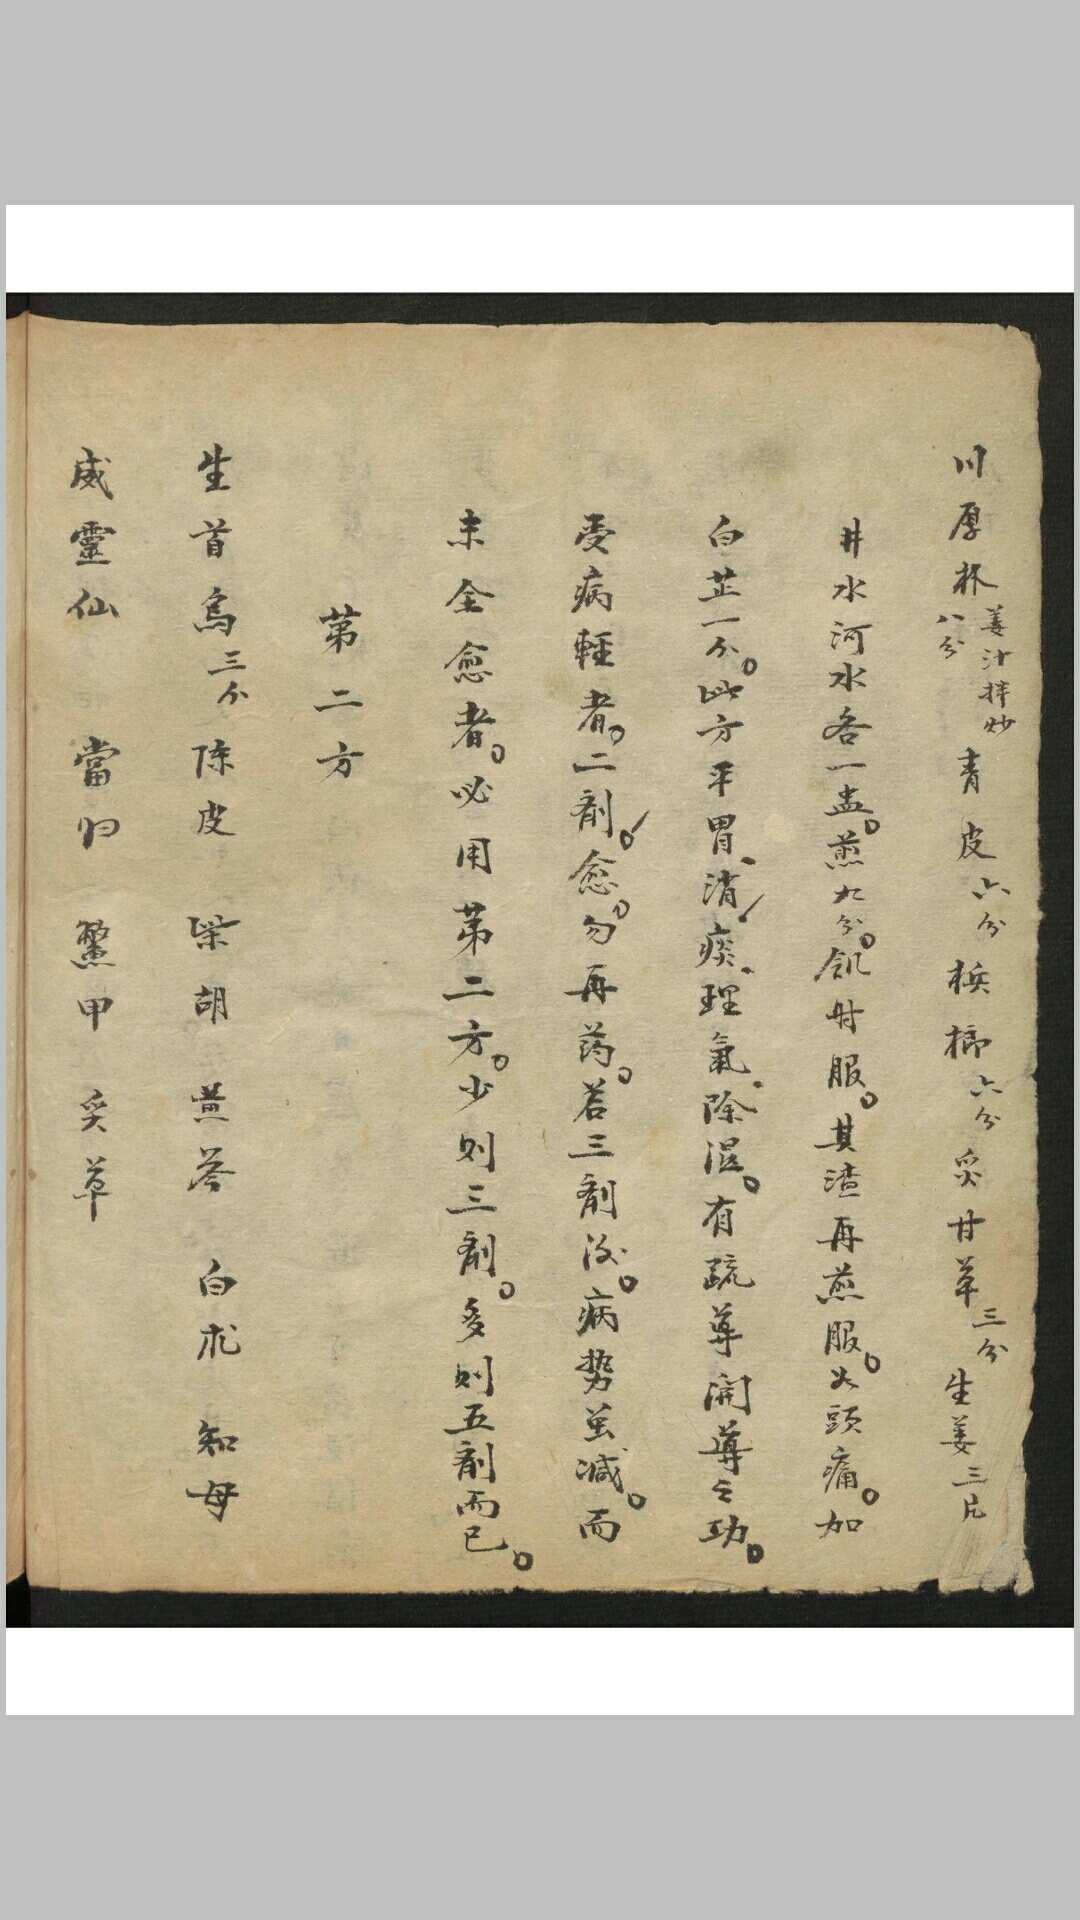 川厚朴八分姜汁拌炒青皮六分梹榔六分炙甘草三分生姜三片
井水河水各一盅。煎九分。飢时服。其渣再煎服。如頭痛。加
白芷一分。此方平胃、消痰、理氣、除湿。有疏導開導之功。
受病輕者。二剤。愈。勿再药。若三剤後。病势虽减。而
未全愈者。必用第二方。少则三剤。多则五剤而已。
第二方
生首烏三分陈皮 柴胡 黄芩 白朮 知母
威靈仙 當归 鱉甲 炙草